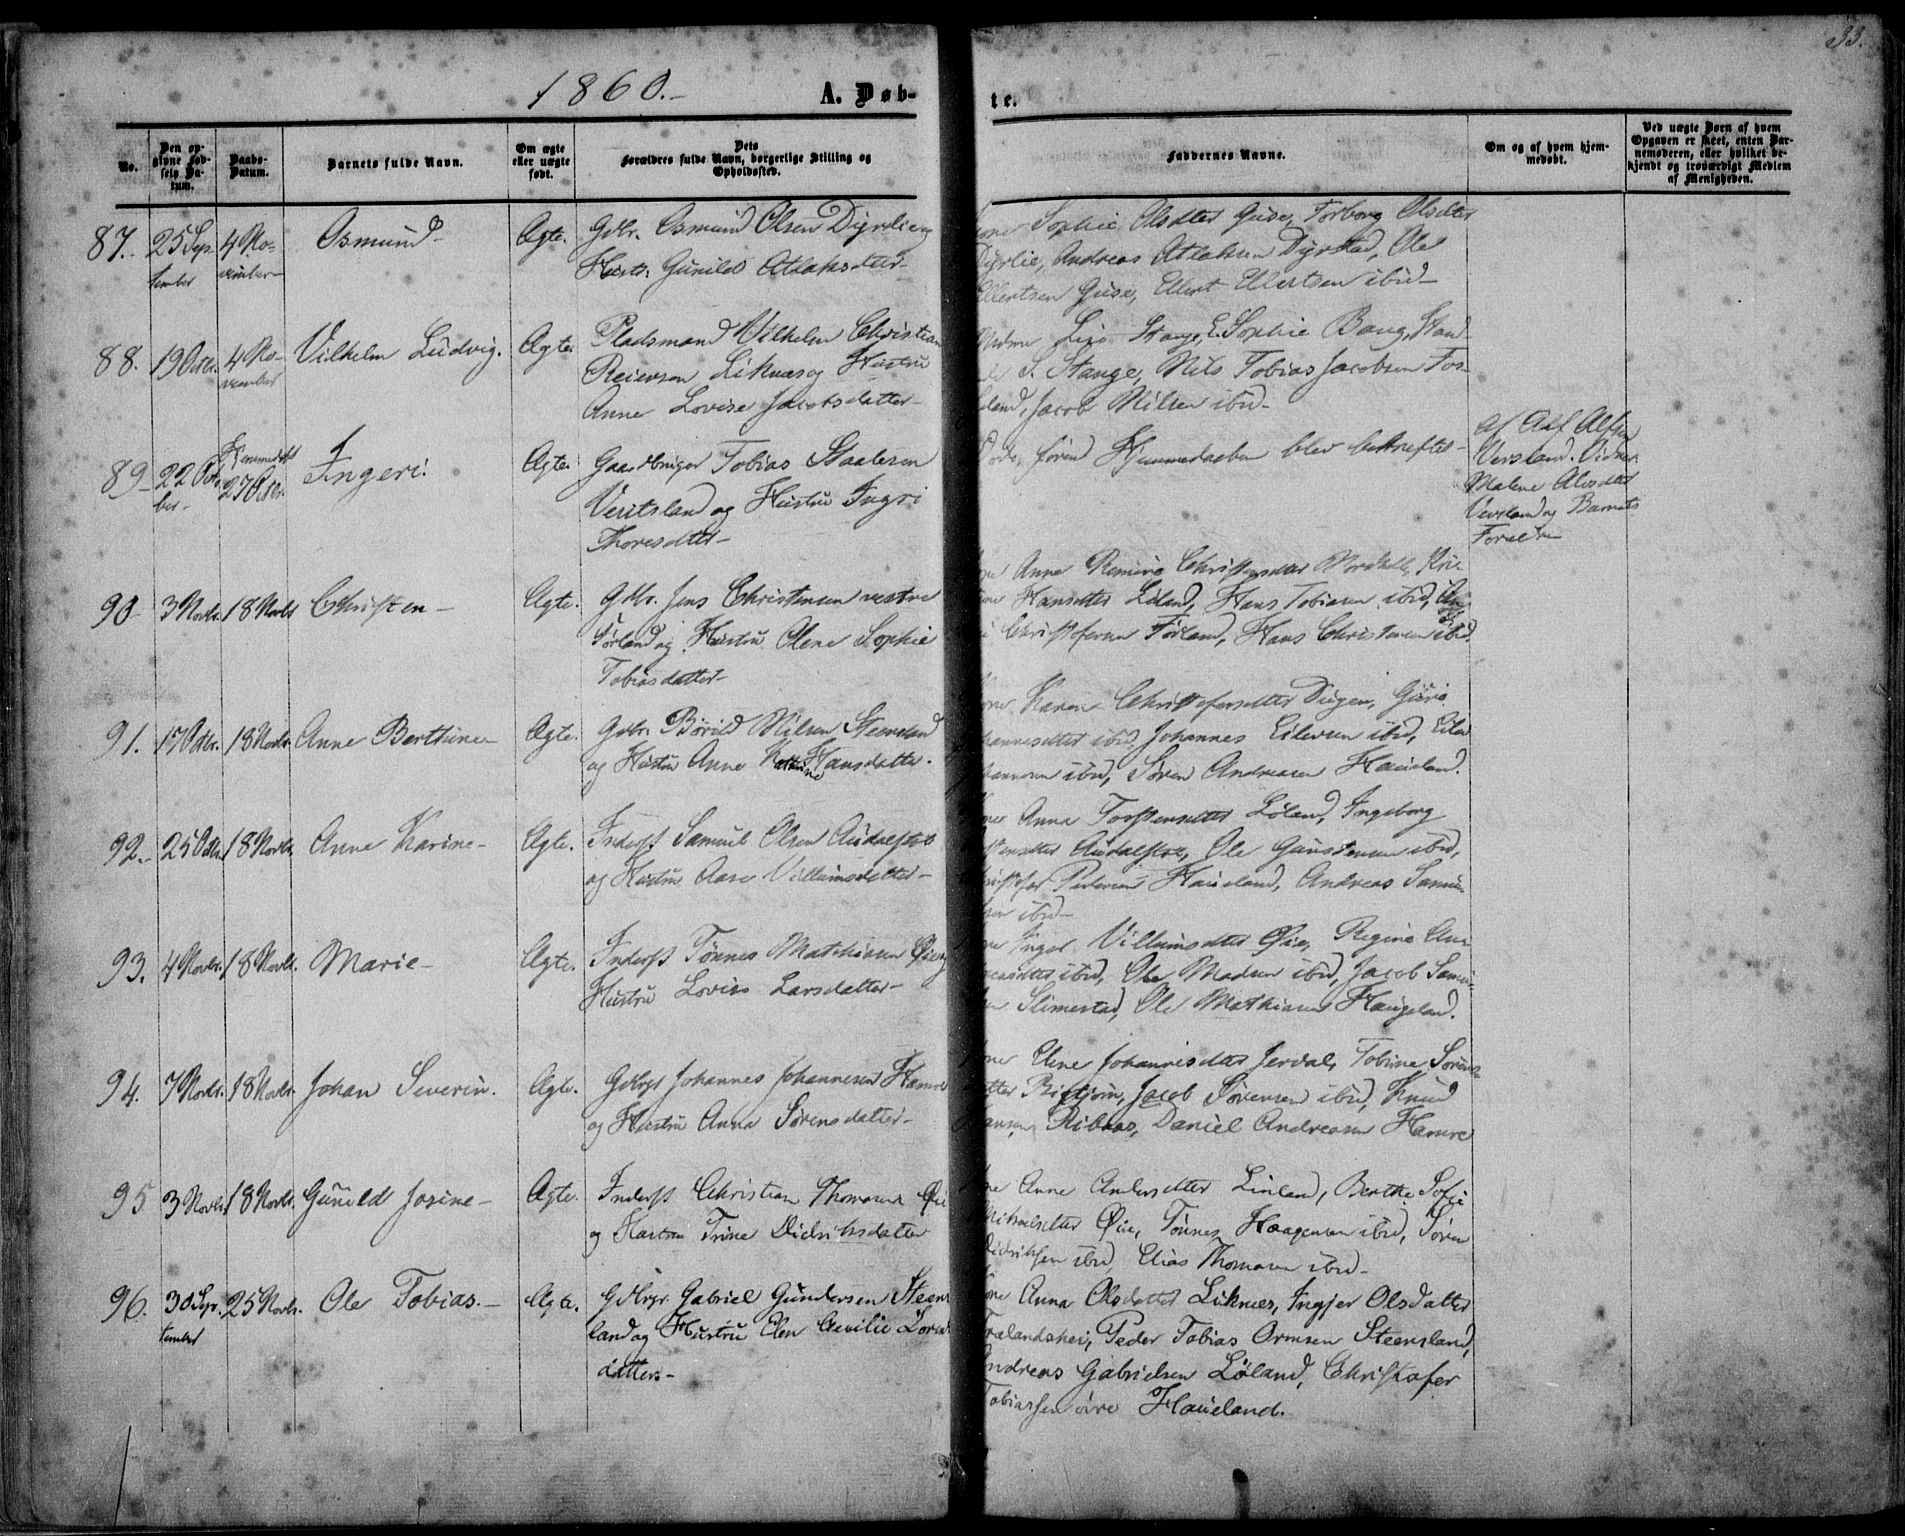 33.
1860.-
A. Døb-
te.
No.
Den op-
givne Fød-
sels Da-
tum.
Daabs-
Datum.
Barnets fulde Navn.
Om ægte
eller uægte
født.
Dets
Forældres fulde Navn, borgerlige Stilling og
Opholdssted.
Faddernes Navne.
Om og af hvem hjem-
medøbt.
Ved uægte Børn af hvem
Opgaven er skeet, enten Bar-
nemoderen, eller hvilket be-
kjendt og troværdigt Medlem
af Menigheden.
87.- 25 Sep- 4 No- Osmund- Ægte. Gdbr. Osmund Olsen Dyrlie og
tember vember Hustr. Gunild Atlaksdatter-
Sophie Olsdtter Guse, Torborg Olsdtter
Dyrlie, Andreas Atlaksen Dyrstad, Ole
Ellertsen Guse, Ellert Ellertsen ibid-
88. 19 Octr. 4 No- Vilhelm Ludvig. Ægte. Pladsmand Vilhelm Christian
vember Reiersen Liknæs og Hustru
Anne Lovise Jacobsdatter-
Stange, E. Sophie Bang,
S. Stange, Nils Tobias Jacobsen Fos-
land, Jacob Nilsen ibid-
89- 22 Octo- Hjemmedøbt 27 Octr. Ingeri. Ægte. Gaardbruger Tobias Staalesen
ber- Veritsland og Hustru Ingri
Thoresdtter-
Døde, førend Hjemmedaaben blev bekræftet-
af Alf Alfsen
Versland. Vidner:
Malene Alvsdtter
Versland og Barnets
Forældre
90- 3 Novbr. 18 Novbr Christen- Ægte. Gdbr. Jens Christensen vestre
Førland og Hustru Olene Sophie
Tobiasdatter-
Anne Christensdtter
Hansdtter Løland, Hans Tobiasen ibid,
Christofersen Førland, Hans Christensen ibid.
91. 17 Octbr. 18 Novbr. Anne Berthine- Ægte. Gdbr. Børild Nilsen Steensland
og Hustru Anne Kathrine Hansdatter.
Karen Christofersdtter Dugen, Guri
hannesdtter ibid, Johannes Eilersen ibid, Eiler
hannesen ibid, Søren Andreasen Haueland.
92.- 25 Octbr. 18 Novbr. Anne Karine- Ægte. Inderst Samuel Olsen Audalstve
og Hustru Aase Villumsdatter-
Anna Torstensdtter Løland, Ingeborg
stensdtter Ole Gunstensen ibid,
Christofer Pedersen Haueland, Andreas Samuel-
sen ibid-
93. 4 Novbr. 18 Novbr. Marie- Ægte. Inderst Tønnes Mathiasen Øie og
Hustru Lovise Larsdatter-
Inger Villumsdtter Øie, Regine An-
dreasdtter ibid, Ole Madsen ibid, Jacob Samu-
Slimestad, Ole Mathiasen Haugeland.
94. 7 Novbr. 18 Novbr. Johan Severin. Ægte. Gdbrgr Johannes Johannesen Hamre
og Hustru Anna Sørensdatter-
Elene Johannesdtter Jerdal, Tobine Sørens-
datter Jacob Sørensen ibid, Knud
Hansen Ribaas, Daniel Andreasen Hamre
95 3 Novbr. 18 Novbr. Gunild Josine- Ægte. Inderst Christian Thomasen Øie
og Hustru Trine Didriksdatter
Anne Andersdtter Linland, Berthe Sofie
Mikalsdtter Øie, Tønnes Haagensen ibid, Søren
Didriksen ibid, Elias Thomasen ibid-
96. 30 Sep- 25 Novbr. Ole Tobias.- Ægte. Gdbrgr. Gabriel Gundersen Steens-
tember land og Hustru Elen Cecilie Lorens-
datter-
Anna Olsdatter Liknæs, Ingjer Olsdatter
Trælandshei, Peder Tobias Ormsen Steensland,
Andreas Gabrielsen Løland, Christofer
Tobiassen øvre Haueland.